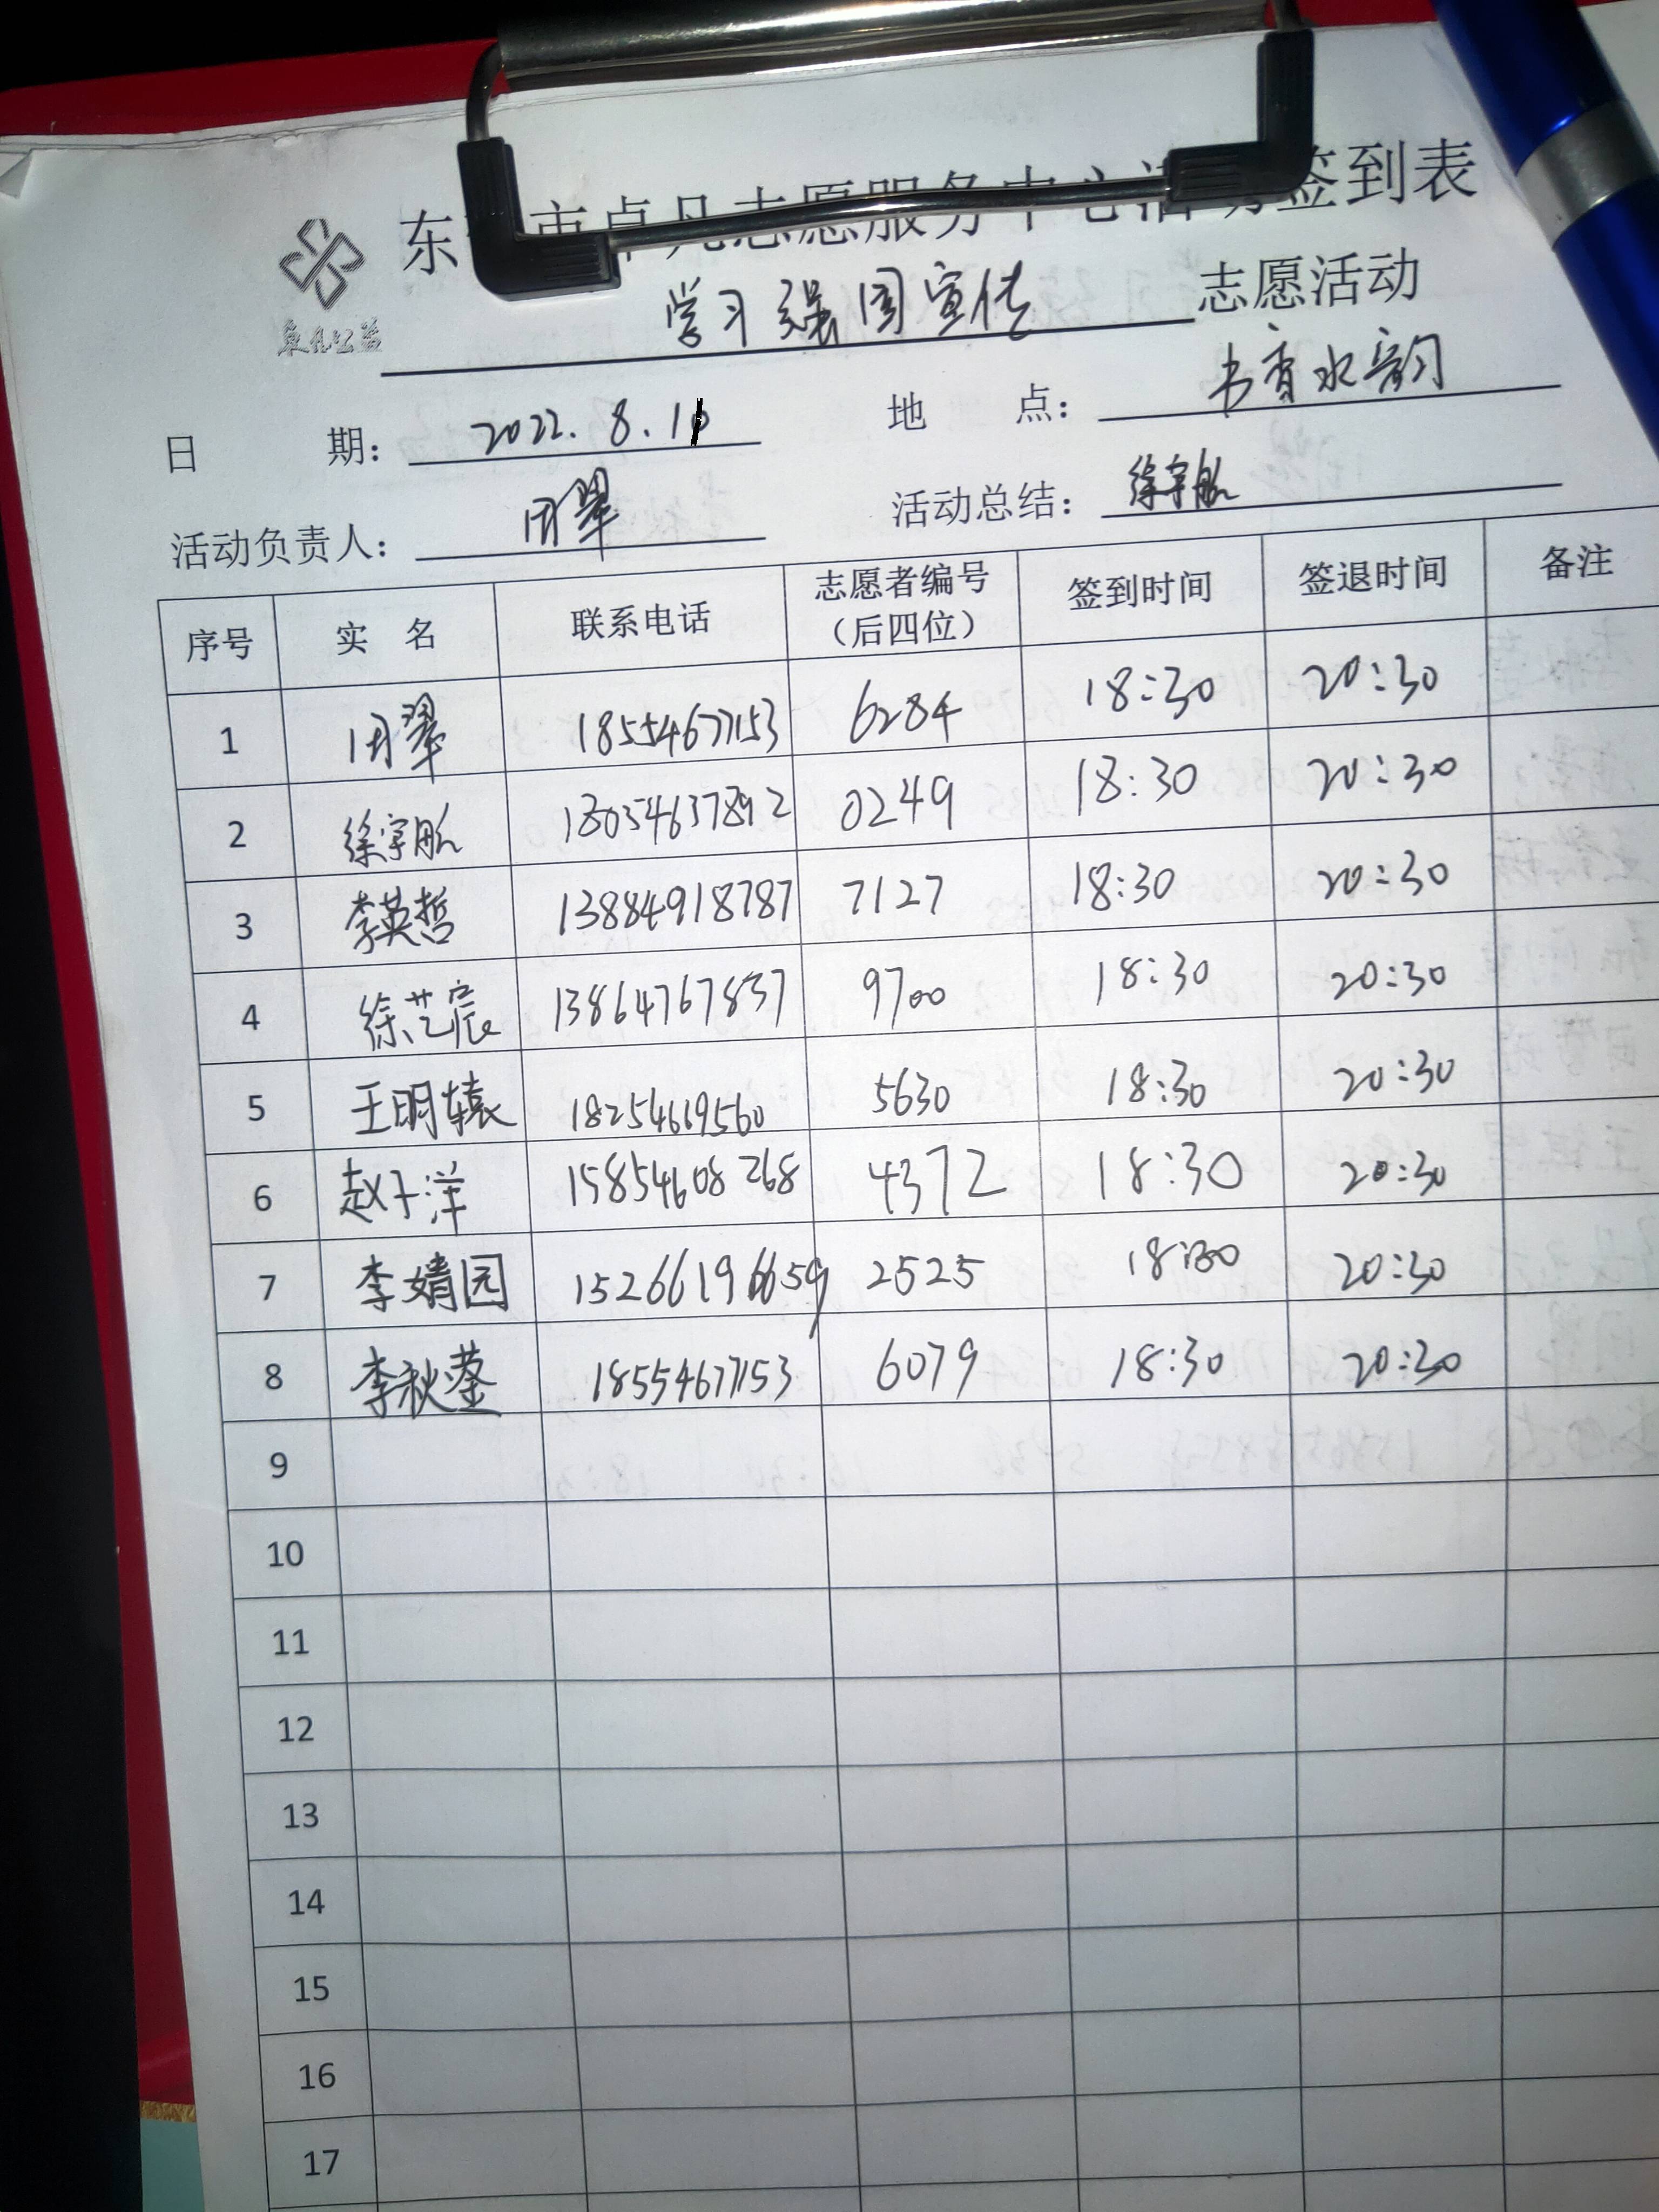 东 市卓凡志愿服务中心活动签到表
卓凡公益
学习强国宣传志愿活动
日 期：2022.8.11 地 点：书香水韵
活动负责人：田翠 活动总结：徐宇航
序号 实 名 联系电话 志愿者编号（后四位） 签到时间 签退时间 备注
1 田翠 18554677153 6284 18:30 20:30
2 徐宇航 18054637892 0249 18:30 20:30
3 李英哲 13884918787 7127 18:30 20:30
4 徐艺宸 13864767837 9700 18:30 20:30
5 王明辕 18254619560 5630 18:30 20:30
6 赵子洋 15854608268 4372 18:30 20:30
7 李婧园 15266196659 2525 18:30 20:30
8 李秋蓥 18554677153 6079 18:30 20:30
9
10
11
12
13
14
15
16
17